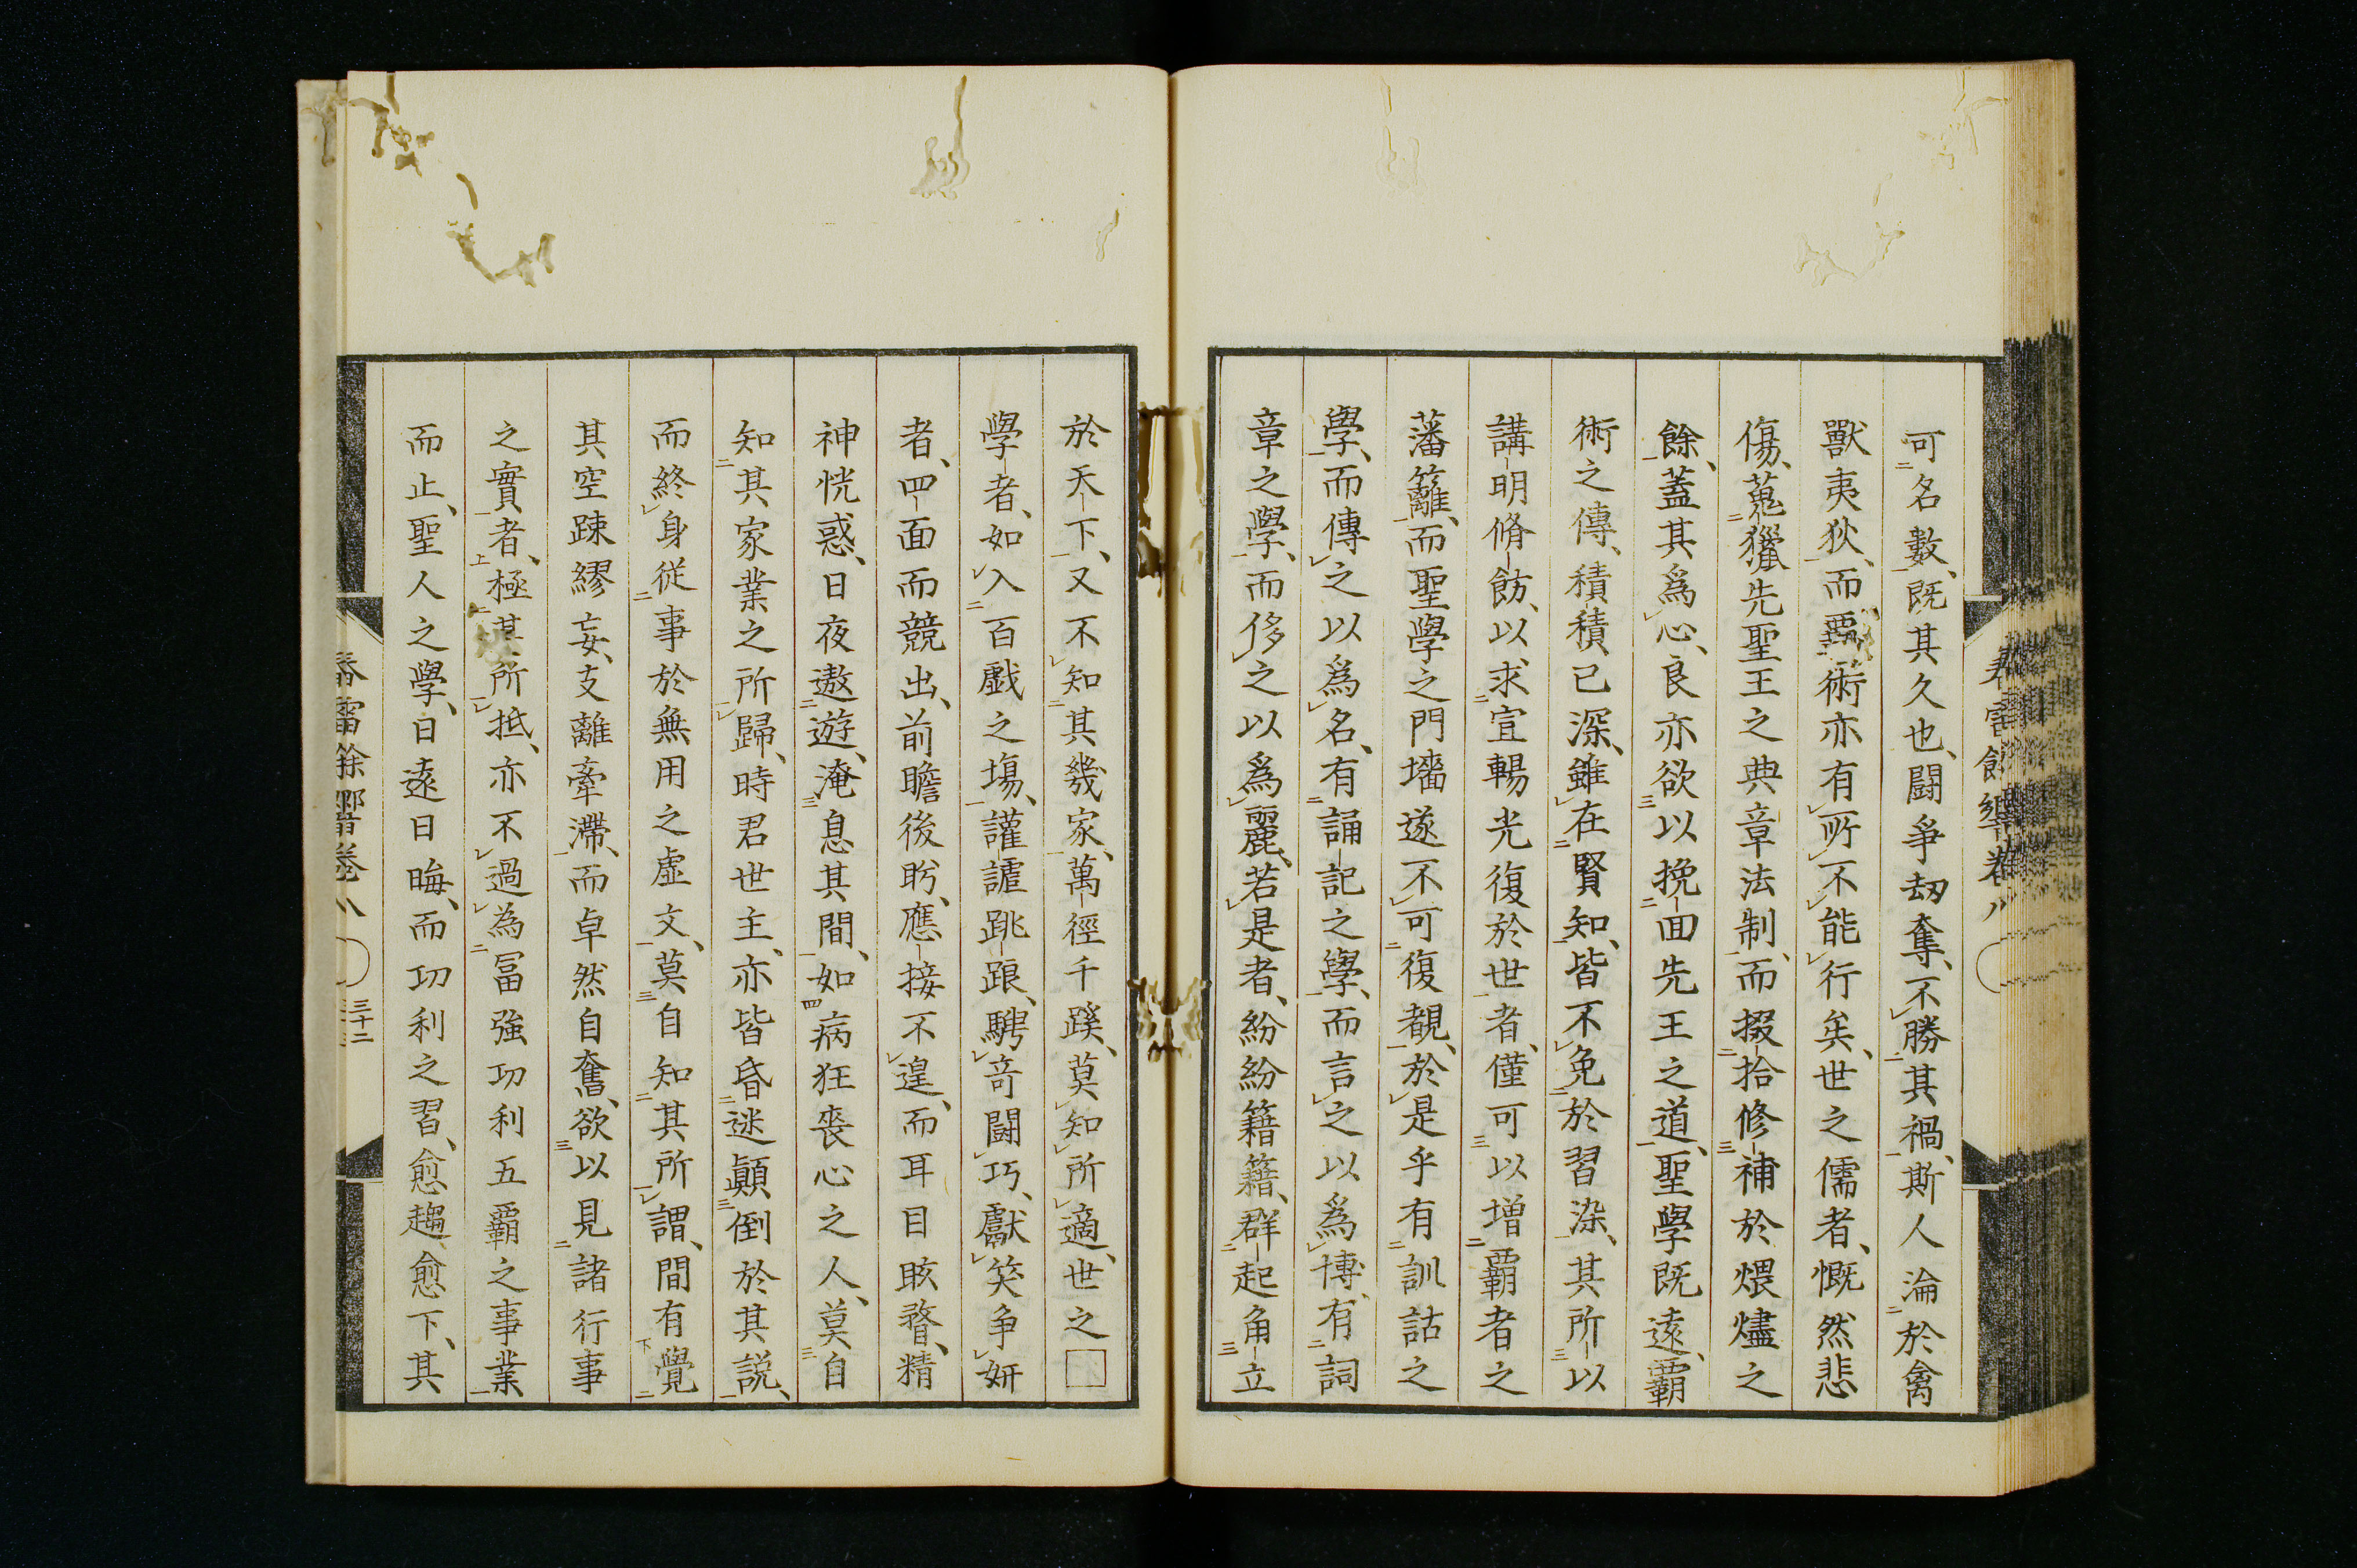 可名數、既其久也、鬪爭刼奪、不勝其禍、斯人淪於禽
獸夷狄、而覇術亦有所不能行矣、世之儒者、慨然悲
傷、蒐獵先聖王之典章法制、而掇拾修補於煨燼之
餘、蓋其爲心、良亦欲以挽囬先王之道、聖學既遠、覇
術之傳、積積已深、雖在賢知、皆不免於習染、其所以
講明脩飭、以求宣暢光復於世者、僅可以增覇者之
藩籬、而聖學之門墻遂不可復覩、於是乎有訓詁之
學、而傳之以爲名、有誦記之學、而言之以爲博、有詞
章之學、而侈之以爲麗、若是者、紛紛籍籍、群起角立
於天下、又不知其幾家、萬徑千蹊、莫知所適、世之□
學者、如入百戲之場、讙謔跳踉、騁奇鬪巧、獻笑争妍
者、四面而競出、前瞻後盻、應接不遑、而耳目眩瞀、精
神恍惑、日夜遨遊、淹息其間、如病狂喪心之人、莫自
知其家業之所歸、時君世主、亦皆昏迷顚倒於其説、
而終身從事於無用之虚文、莫自知其所謂、間有覺
其空踈繆妄、支離牽滯、而卓然自奮、欲以見諸行事
之實者、極其所抵、亦不過為冨強功利五覇之事業
而止、聖人之學、日遠日晦、而功利之習、愈趨愈下、其
春雷餘響卷八
三十二